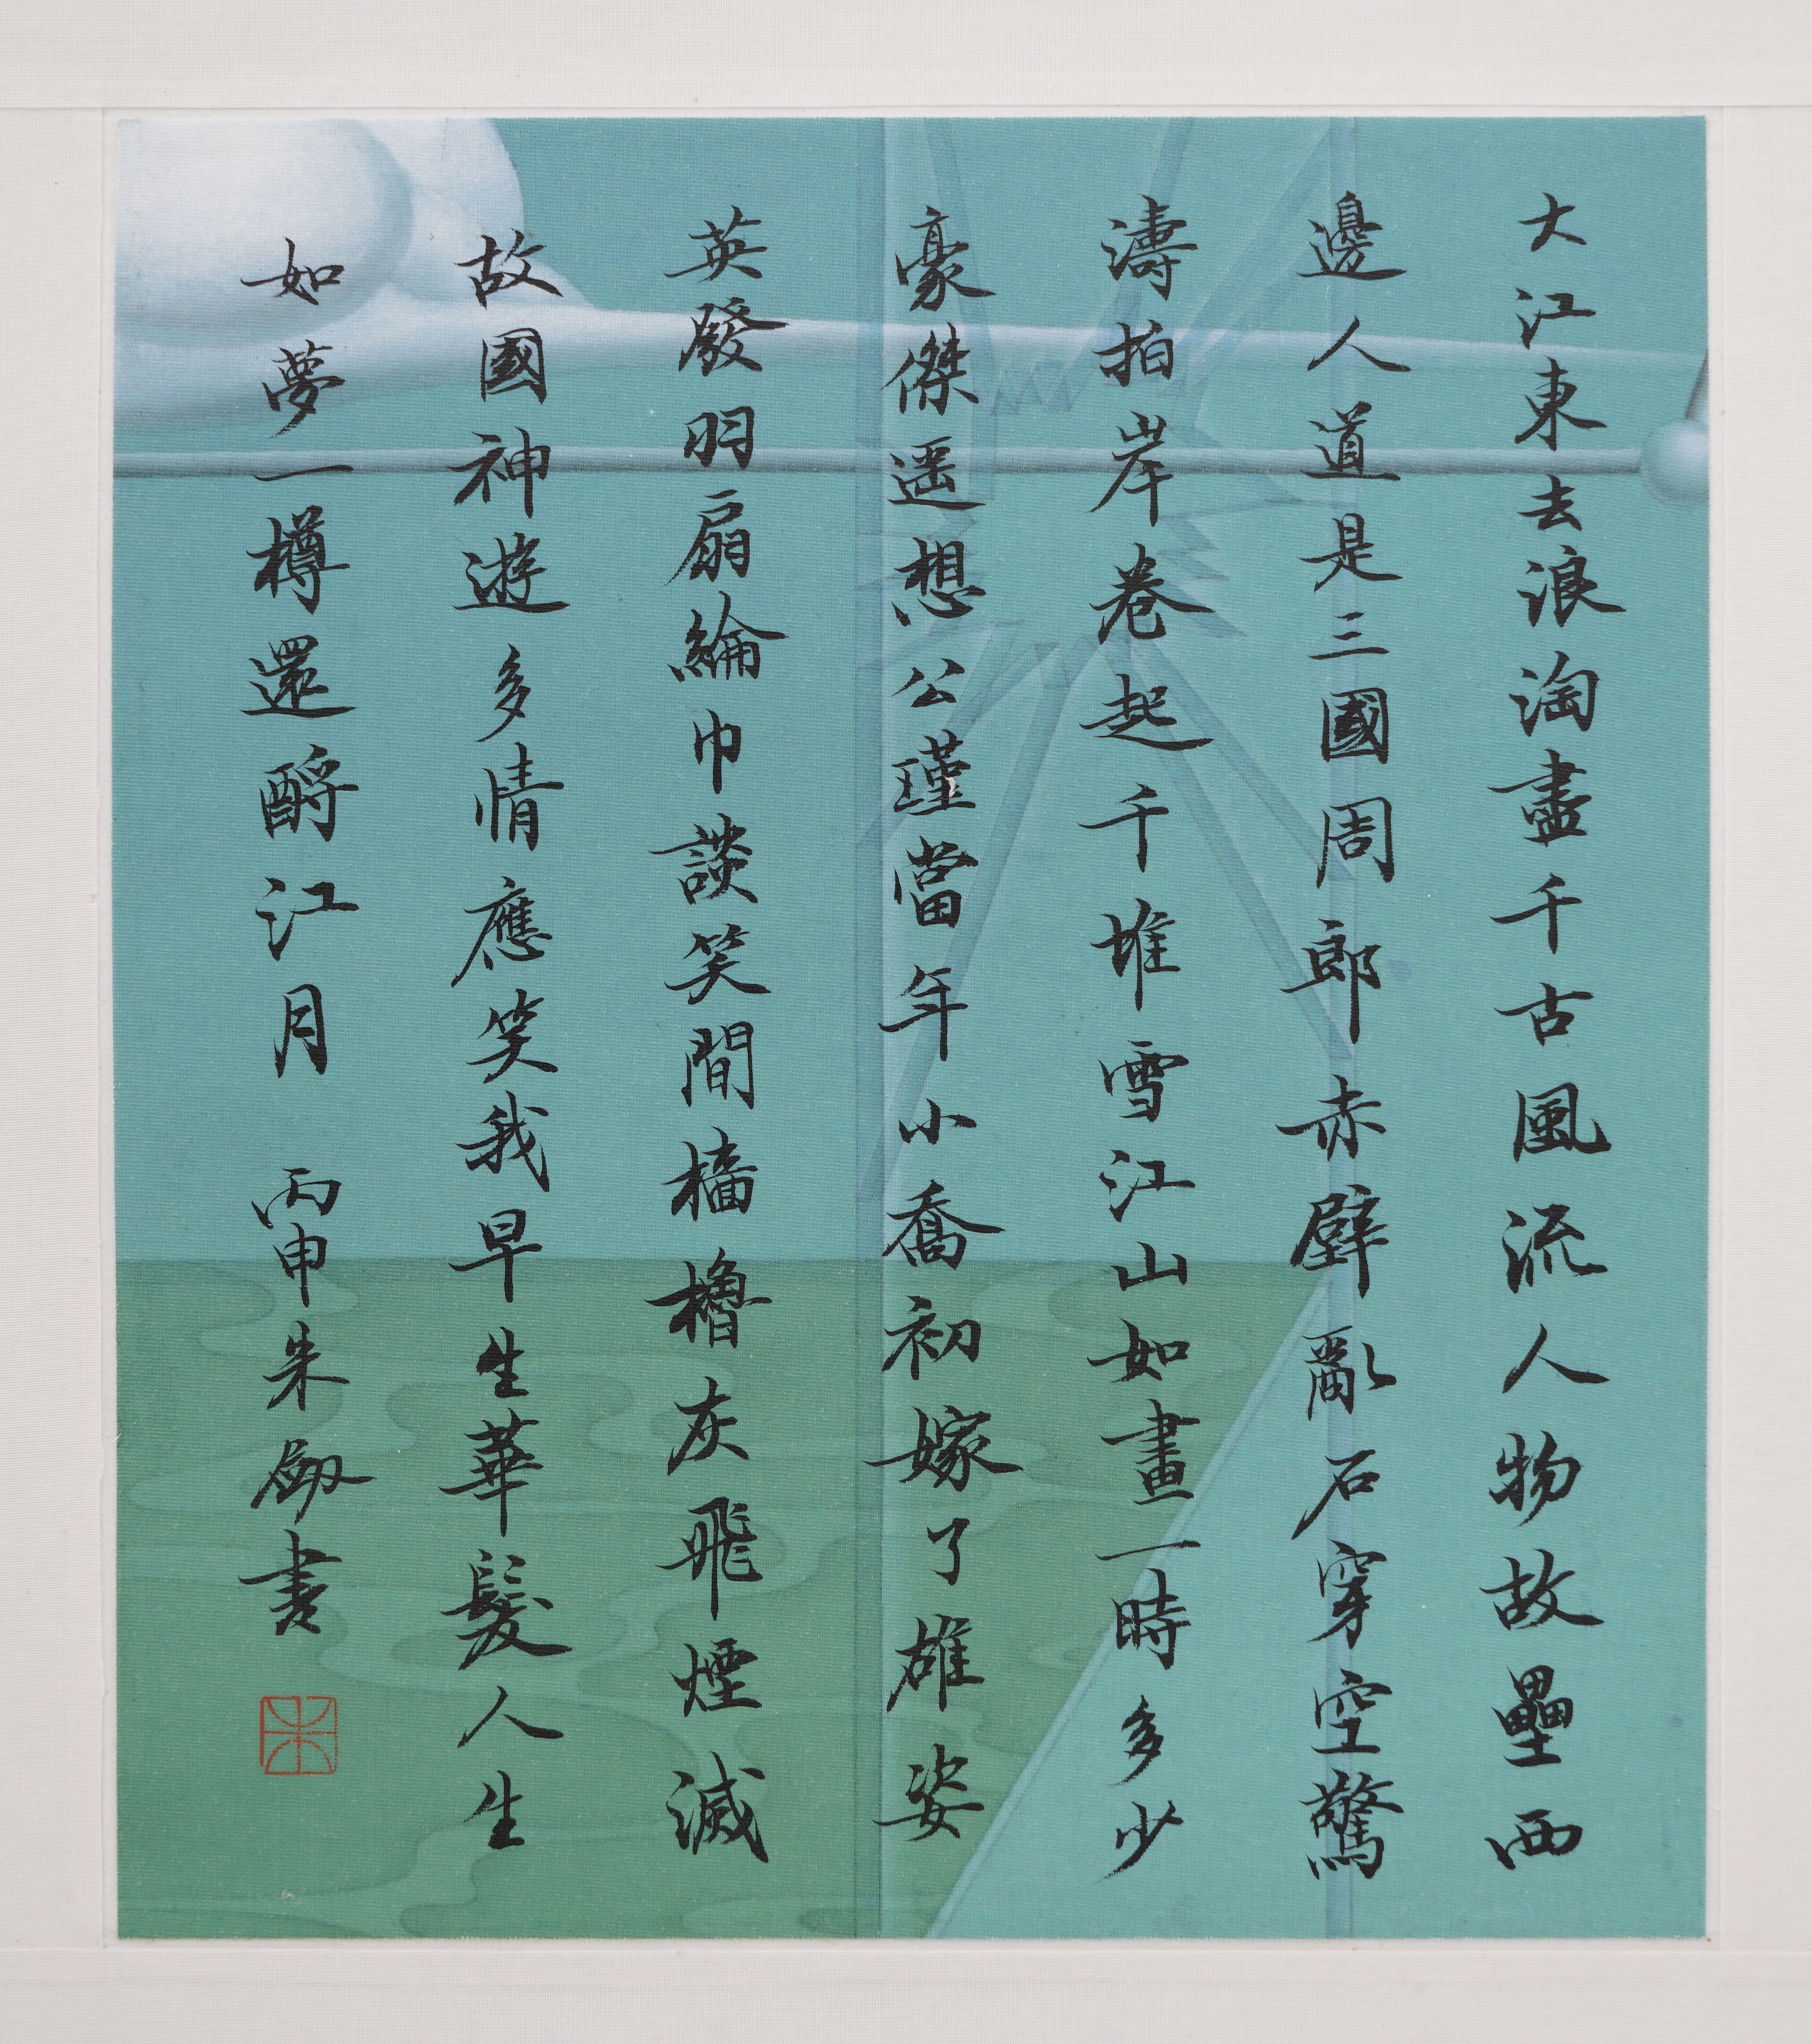 大江東去浪淘盡千古風流人物故壘西
邊人道是三國周郎赤壁亂石穿空驚
濤拍岸卷起千堆雪江山如畫一時多少
豪傑遥想公瑾當年小喬初嫁了雄姿
英發羽扇綸巾談笑間檣櫓灰飛煙滅
故國神遊多情應笑我早生華髮人生
如夢一樽還酹江月 丙申朱劒書